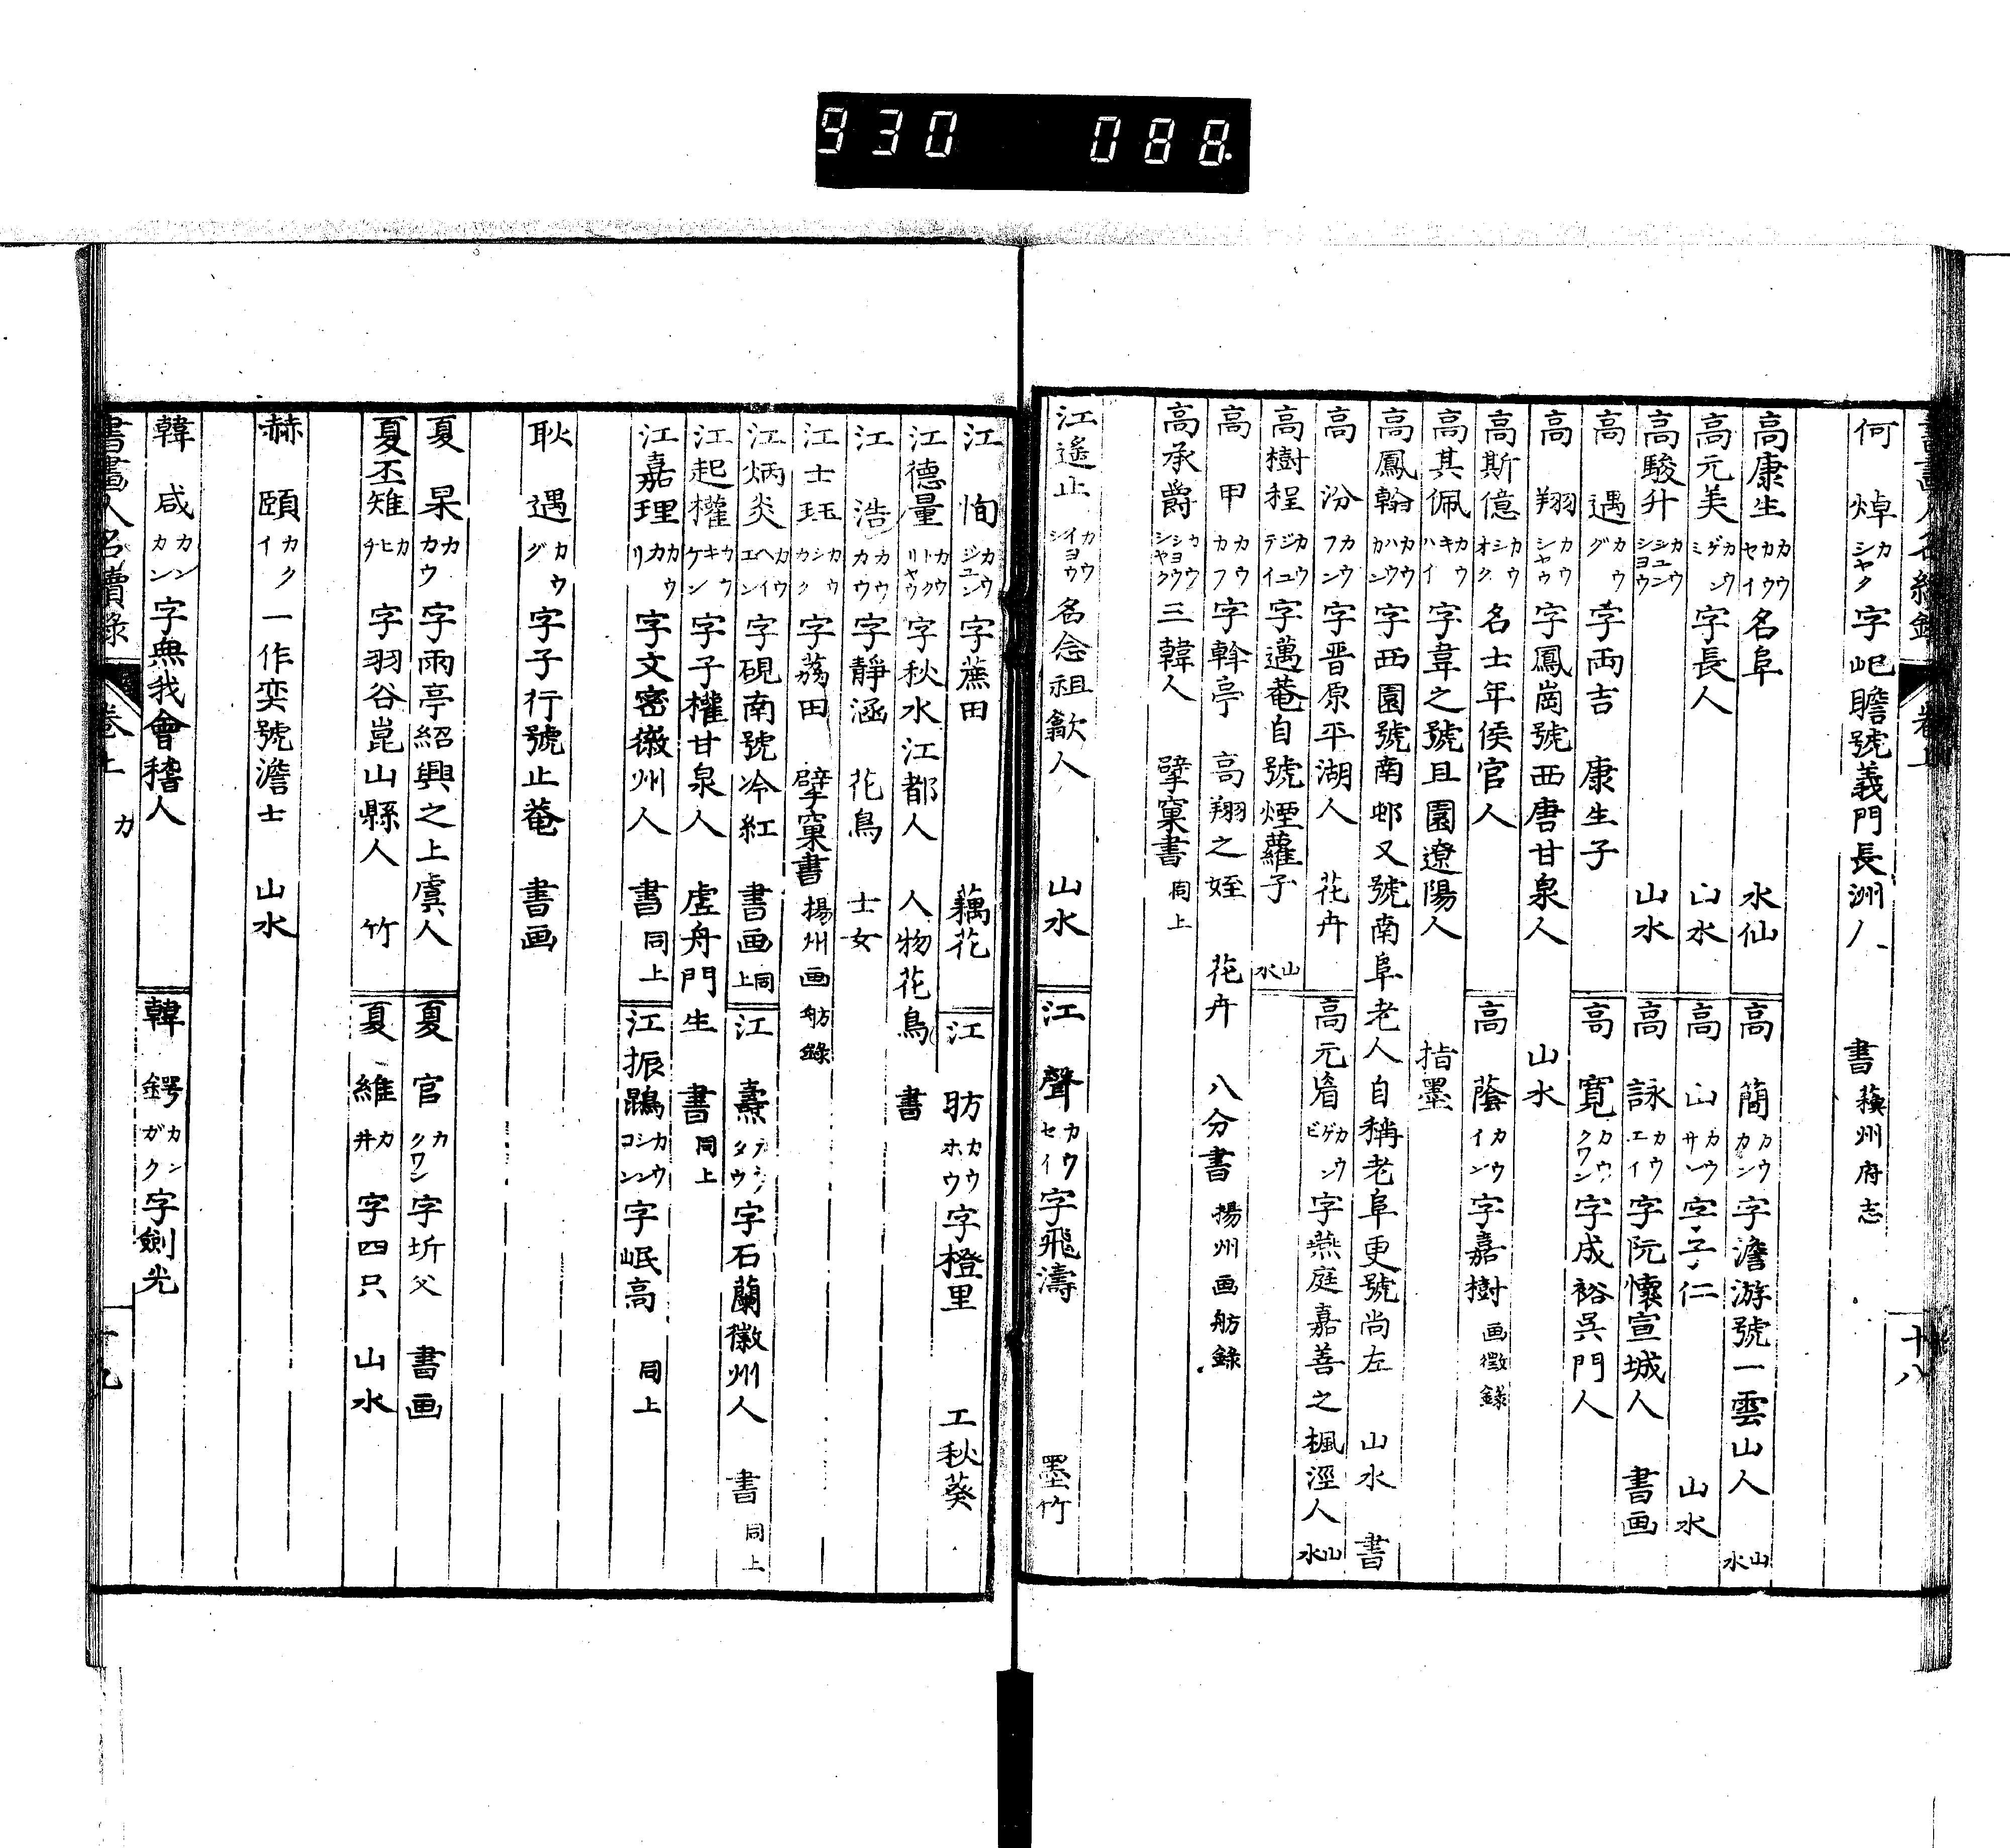 930 088
何焯 カシャク 字屺瞻號義門長洲人 書 蘇州府志
高康生 カウカウセイ 名阜 水仙
高簡 カウカン 字澹游號一雲山人 山水
高元美 カウゲンミ 字長人 山水
高山 カウサン 字子仁 山水
高駿升 カウシュンショウ 山水
高詠 カウエイ 字阮懷宣城人 書画
高遇 カウグ 字雨吉 康生子
高寛 カウクワン 字成裕呉門人
高翔 カウシャウ 字鳳崗號西唐甘泉人 山水
高斯億 カウシオク 名士年侯官人
高蔭 カウイン 字嘉樹 画徴録
高其佩 カウキハイ 字韋之號且園遼陽人 指墨
高鳳翰 カウハウカン 字西園號南邨又號南阜老人自稱老阜更號尚左 山水 書
高汾 カウフン 字晋原平湖人 花卉
高元眉 カウゲンビ 字燕庭嘉善之楓涇人 山水
高樹程 カウジュテイ 字邁菴自號煙蘿子 山水
高甲 カウカフ 字幹亭 高翔之姪 花卉 八分書 揚州画舫錄
高承爵 カウショウシャク 三韓人 擘窠書 同上
江遙止 カウヨウシ 名念祖歙人 山水
江聲 カウセイ 字飛濤 墨竹
江恂 カウジュン 字蔗田 藕花
江昉 カウホウ 字橙里 工秋葵
江德量 カウトクリャウ 字秋水江都人 人物花鳥 書
江浩 カウカウ 字靜涵 花鳥 士女
江士珏 カウシカク 字荔田 擘窠書 揚州画舫錄
江炳炎 カウヘイエン 字硯南號冷紅 書画 同上
江燾 カウタウ 字石蘭徽州人 書 同上
江起權 カウキケン 字子權甘泉人 虚舟門生 書 同上
江嘉理 カウカリ 字文密徽州人 書 同上
江振鵾 カウシンコン 字岷高 同上
耿遇 カウグ 字子行號止菴 書画
夏杲 カカウ 字雨亭紹興之上虞人
夏官 カクワン 字圻父 書画
夏丕雉 カヒチ 字羽谷崑山縣人 竹
夏維 カ井 字四只 山水
赫頤 カクイ 一作奕號澹士 山水
韓咸 カンカン 字無我會稽人
韓鍔 カンガク 字劍光
書畫人名續錄 卷上 カ